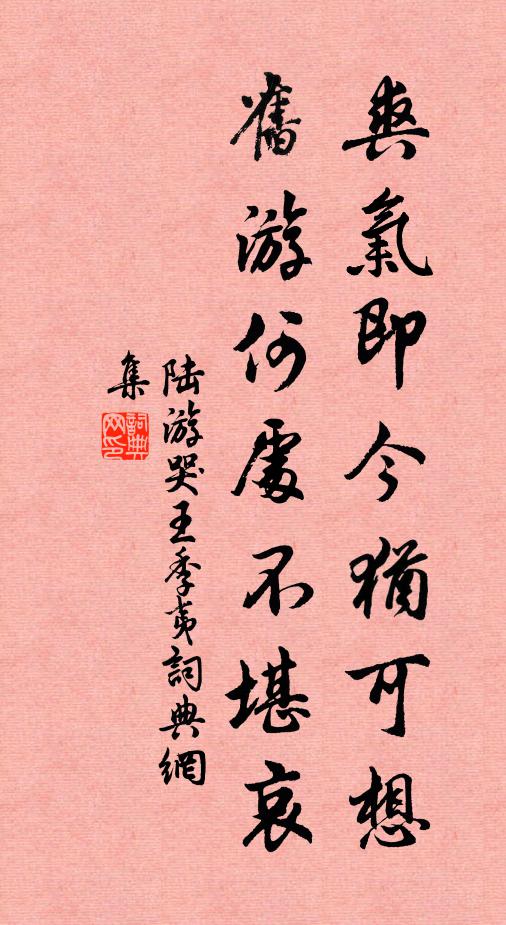 爽氣即今猶可想
舊游何處不堪哀
陆游哭王季夷詞典網
集
詞典网印